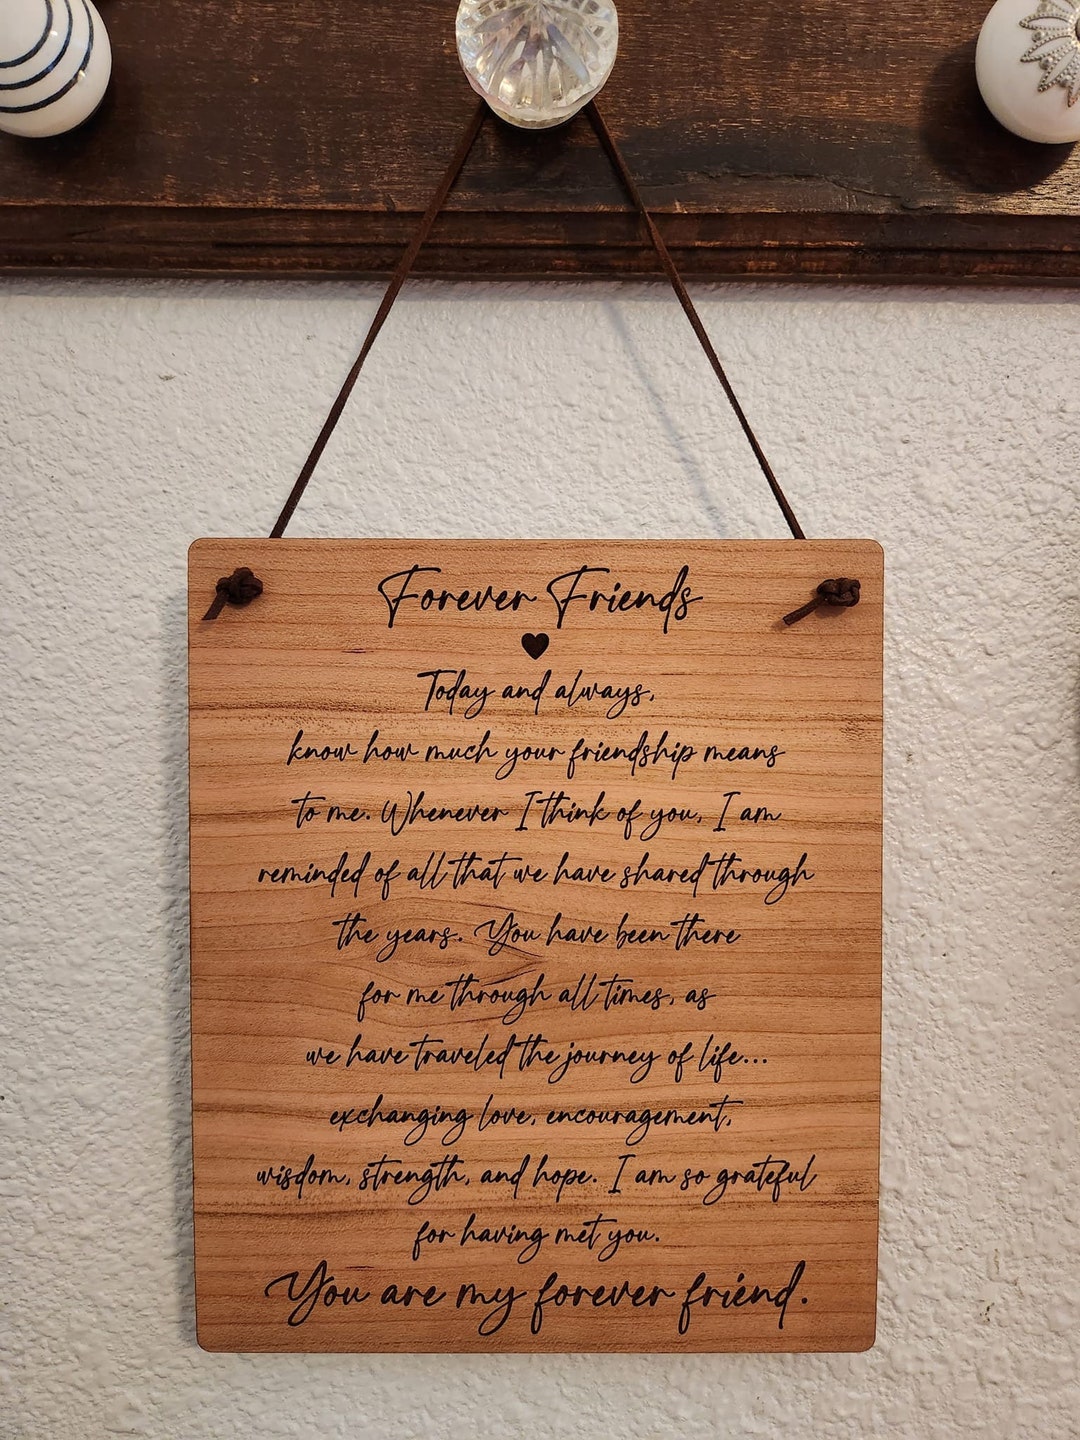 Forever Friends
Today and always,
know how much your friendship means
to me. Whenever I think of you, I am
reminded of all that we have shared through
the years. You have been there
for me through all times, as
we have traveled the journey of life...
exchanging love, encouragement,
wisdom, strength, and hope. I am so grateful
for having met you.
You are my forever friend.